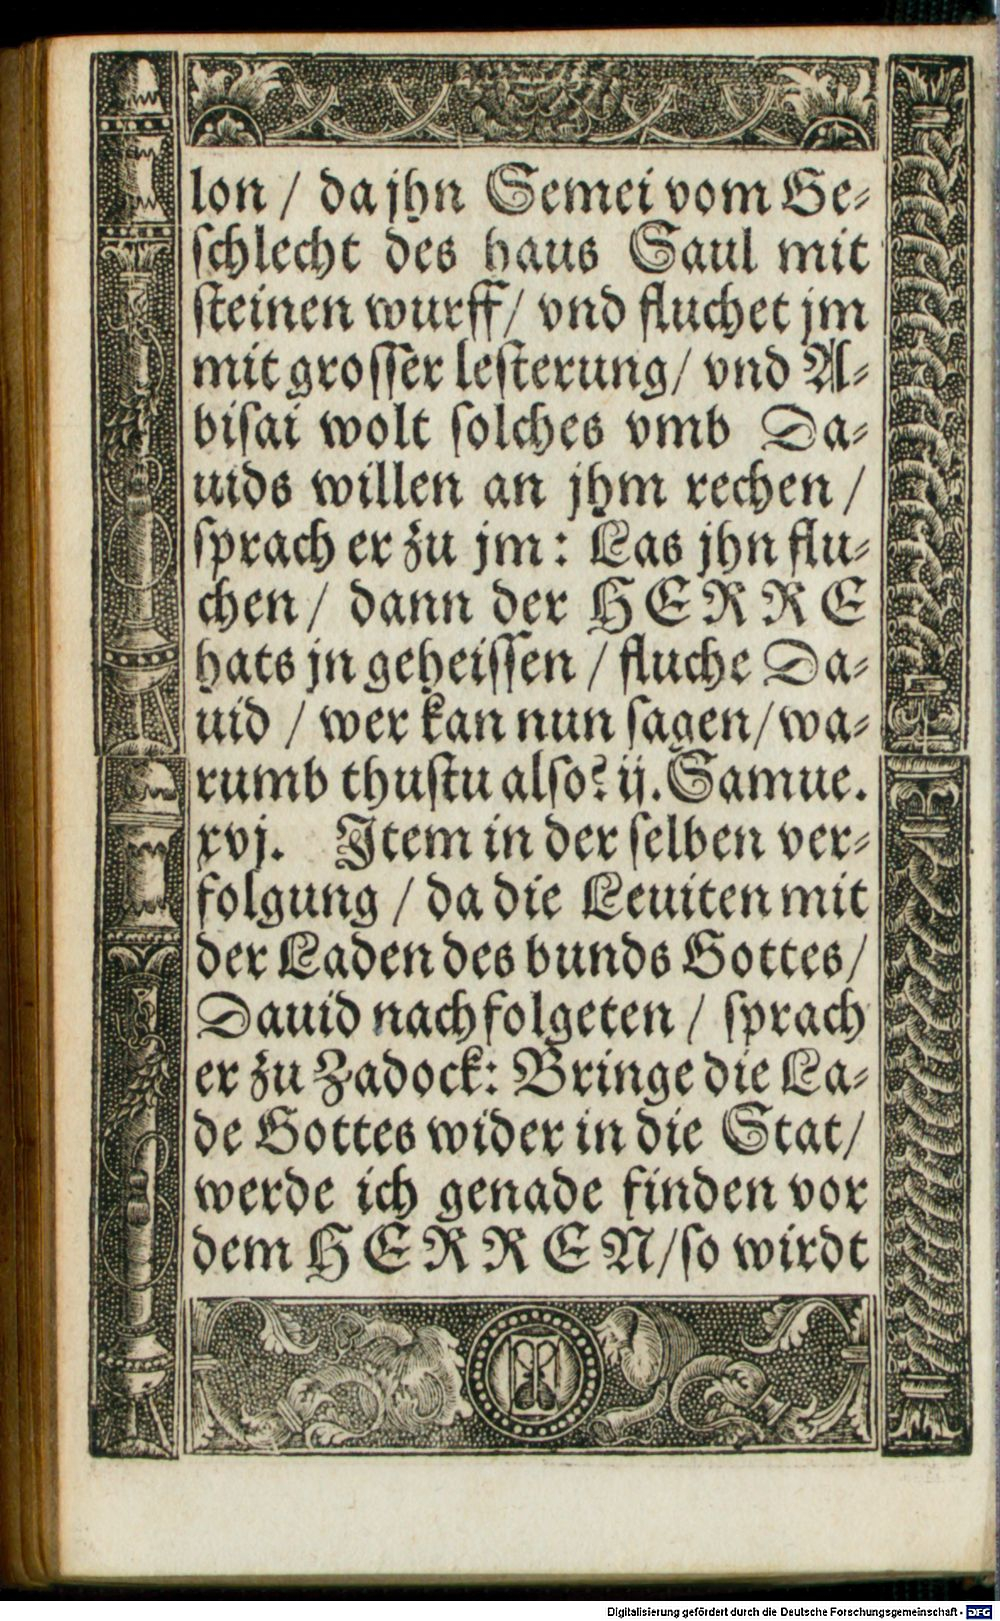 lon / da jhn Semei vom Ge⸗
ſchlecht des haus Saul mit
ſteinen wurff / vnd fluchet jm
mit groſſer leſterung / vnd Al⸗
biſai wolt ſolches vmb Da⸗
uids willen an jhm rechen /
ſprach er zu jm: Las jhn flu⸗
chen / dann der HERRE
hats jn geheiſſen / fluche Da⸗
uid / wer kan nun ſagen / wa⸗
rumb thuſtu alſo? ij. Samue.
xvj. Item in der ſelben ver⸗
folgung / da die Leuiten mit
der Laden des bunds Gottes /
Dauid nachfolgeten / ſprach
er zu Zadock: Bringe die La⸗
de Gottes wider in die Stat /
werde ich genade finden vor
dem HERREN / ſo wirdt
Digitalisierung gefördert durch die Deutsche Forschungsgemeinschaft - DFG